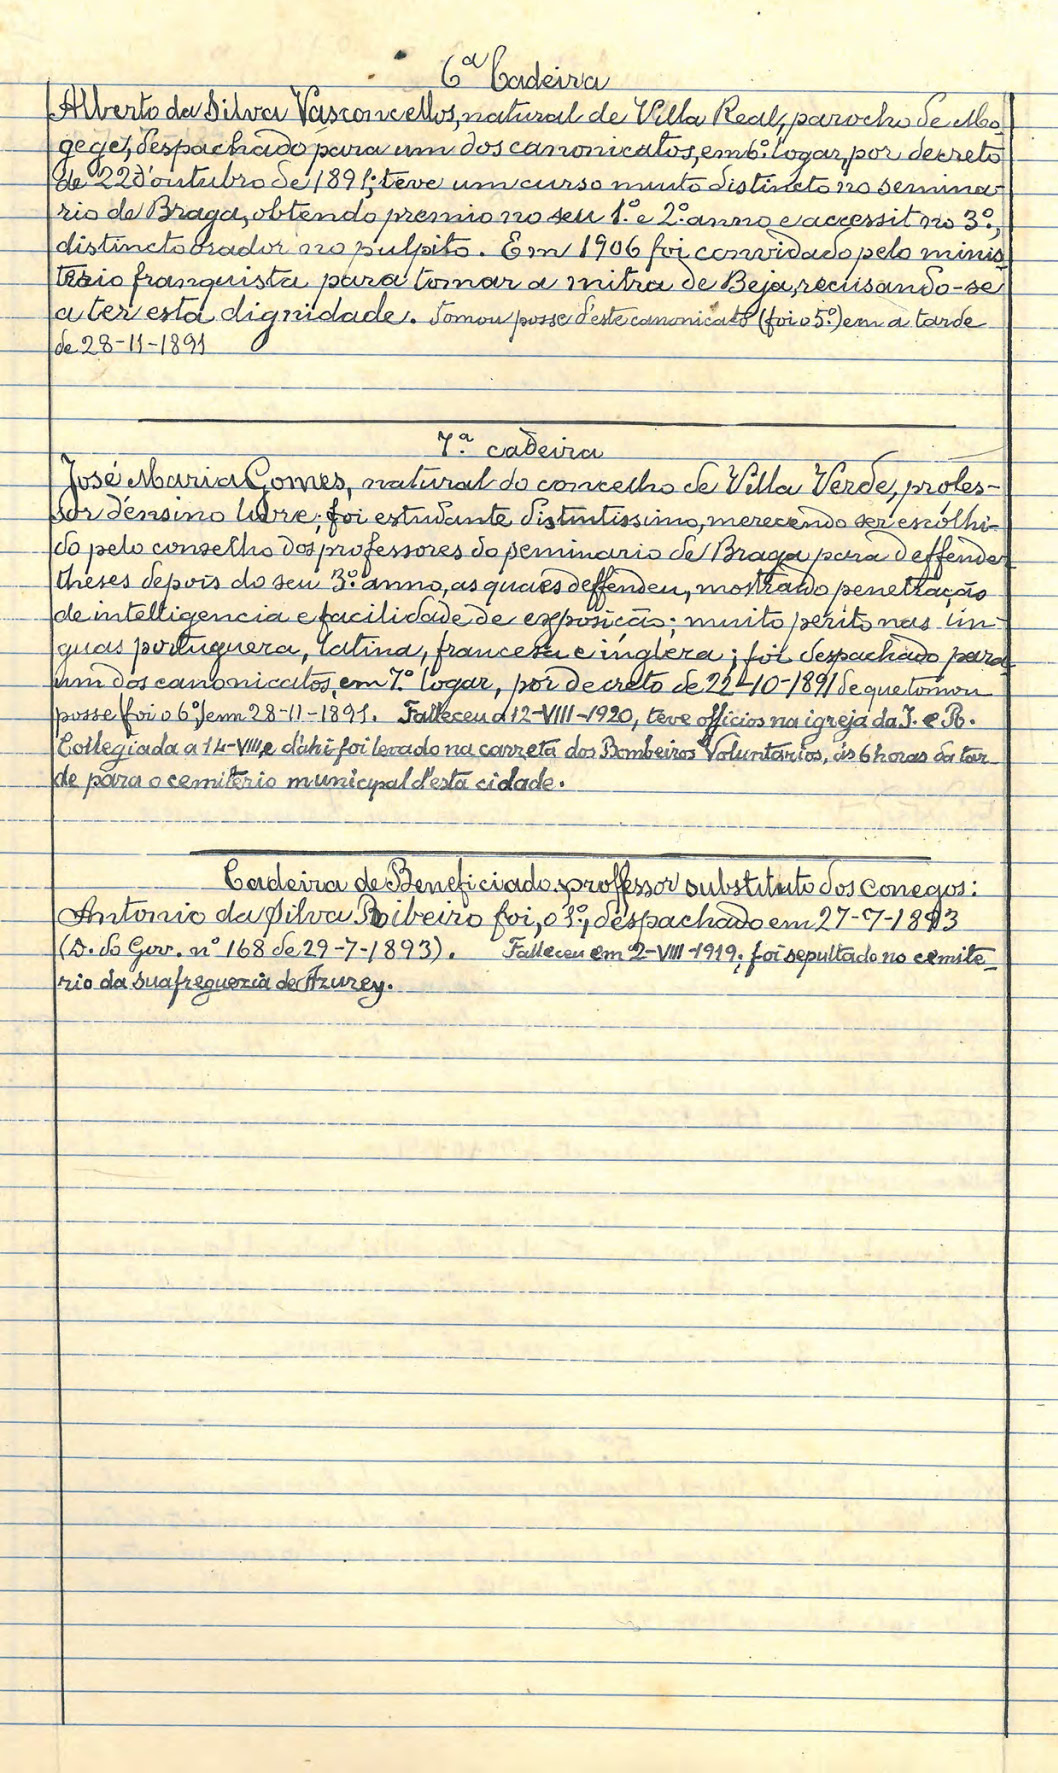 6ª Cadeira
Alberto da Silva Vasconcellos, natural de Villa Real, parocho de Mo-
gege, despachado para um dos canonicatos, em 6º. logar, por decreto
de 22 d'outubro de 1891; teve um curso muito distincto no semina-
rio de Braga, obtendo premio no seu 1.º e 2.º anno e accessit no 3º.,
distincto orador no pulpito. Em 1906 foi convidado pelo minis-
terio franquista para tomar a mitra de Beja, recusando-se
a ter esta dignidade. Tomou posse d'este canonicato (foi o 5º.) em a tarde
de 28-11-1891
7.ª cadeira
José Maria Gomes, natural do concelho de Villa Verde, profes-
sor d'ensino livre; foi estudante distintissimo, merecendo ser escolhi-
do pelo conselho dos professores do seminario de Braga para deffender
theses depois do seu 3.º anno, as quaes deffendeu, mostrando penetração
de intelligencia e facilidade de exposição; muito perito nas lin-
guas portugueza, latina, franceza e ingleza; foi despachado para
um dos canonicatos, em 7.º logar, por decreto de 22-10-1891 de que tomou
posse (foi o 6º.) em 28-11-1891. Falleceu a 12-VIII-1920, teve officios na igreja da I. e R.
Collegiada a 14-VIII, e d'ahi foi levado na carreta dos Bombeiros Voluntarios, ás 6 horas da tar-
de para o cemiterio municipal d'esta cidade.
Cadeira de Beneficiado, proffessor substituto dos conegos:
Antonio da Silva Ribeiro foi, o 1º., despachado em 27-7-1893
(D. do Gov. nº 168 de 29-7-1893). Falleceu em 2-VIII-1919; foi sepultado no cemite-
rio da sua freguezia de Azurey.